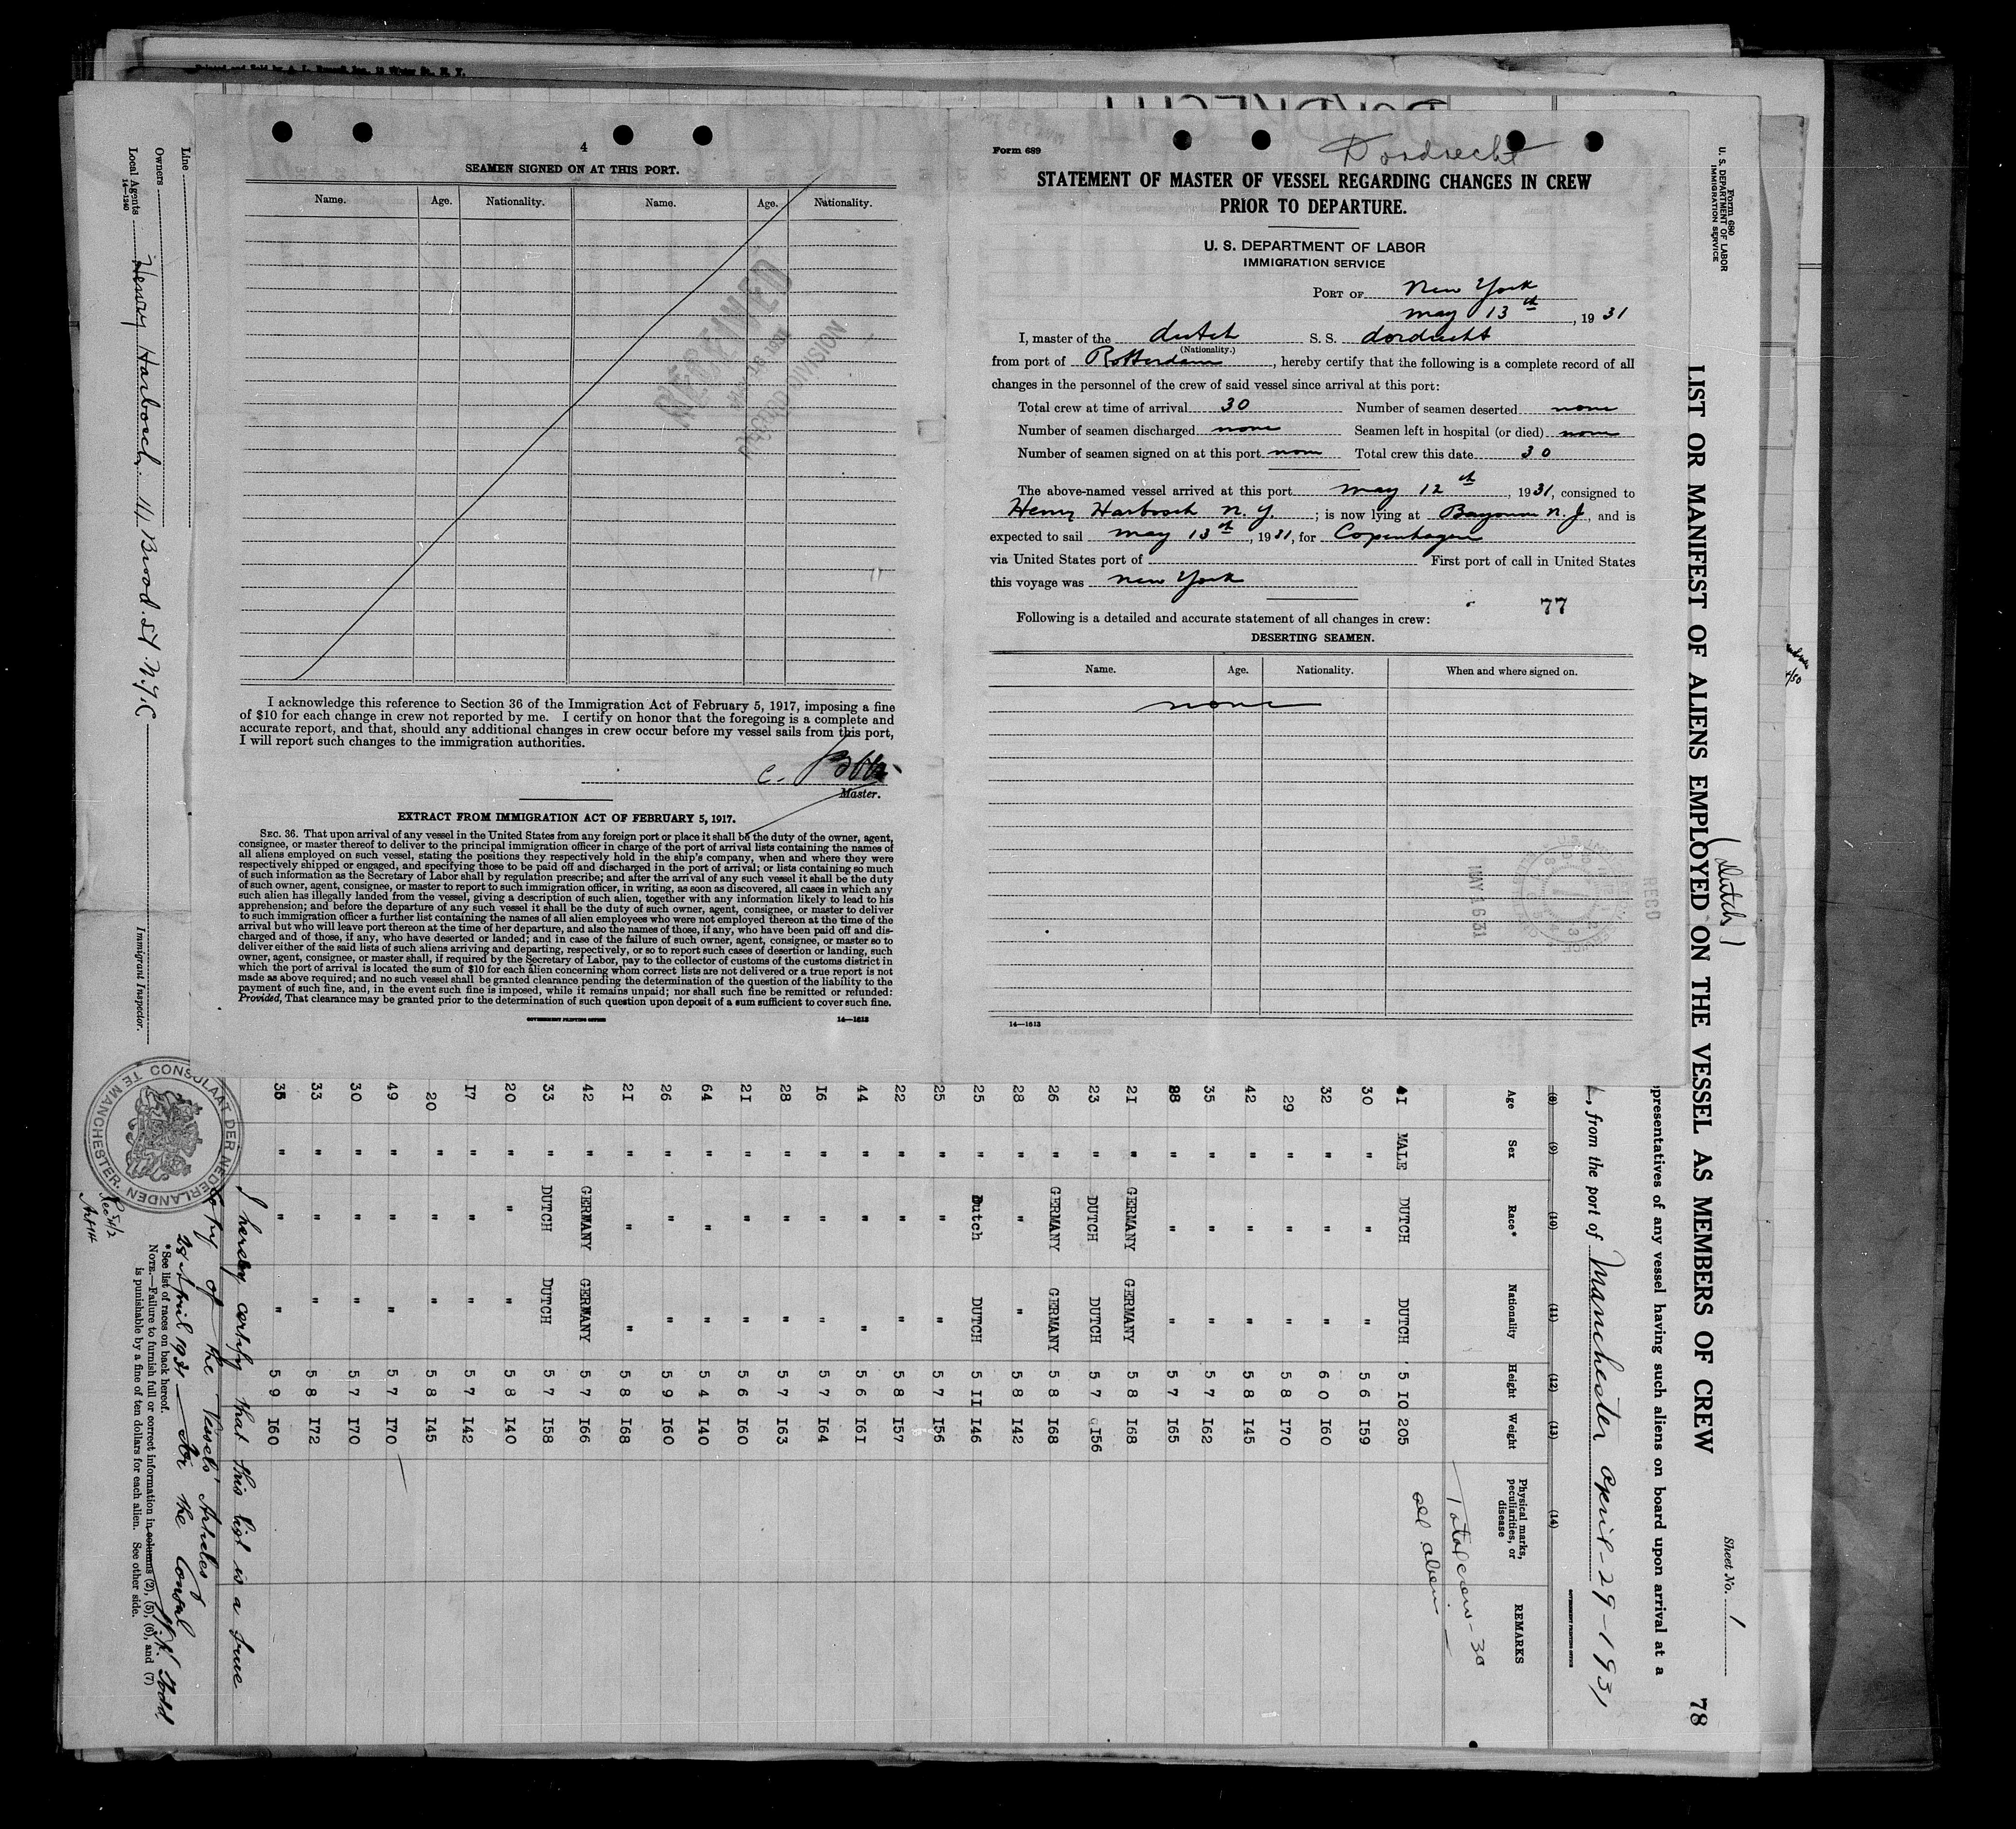 4
SEAMEN SIGNED ON AT THIS PORT.
Name. Age. Nationality. Name. Age. Nationality.
RECEIVED
RECORD DIVISION
I acknowledge this reference to Section 36 of the Immigration Act of February 5, 1917, imposing a fine
of $10 for each change in crew not reported by me. I certify on honor that the foregoing is a complete and
accurate report, and that, should any additional changes in crew occur before my vessel sails from this port,
I will report such changes to the immigration authorities.
C.
Master.
EXTRACT FROM IMMIGRATION ACT OF FEBRUARY 5, 1917.
SEC. 36. That upon arrival of any vessel in the United States from any foreign port or place it shall be the duty of the owner, agent,
consignee, or master thereof to deliver to the principal immigration officer in charge of the port of arrival lists containing the names of
all aliens employed on such vessel, stating the positions they respectively hold in the ship's company, when and where they were
respectively shipped or engaged, and specifying those to be paid off and discharged in the port of arrival; or lists containing so much
of such information as the Secretary of Labor shall by regulation prescribe; and after the arrival of any such vessel it shall be the duty
of such owner, agent, consignee, or master to report to such immigration officer, in writing, as soon as discovered, all cases in which any
such alien has illegally landed from the vessel, giving a description of such alien, together with any information likely to lead to his
apprehension; and before the departure of any such vessel it shall be the duty of such owner, agent, consignee, or master to deliver
to such immigration officer a further list containing the names of all alien employees who were not employed thereon at the time of the
arrival but who will leave port thereon at the time of her departure, and also the names of those, if any, who have been paid off and dis-
charged and of those, if any, who have deserted or landed; and in case of the failure of such owner, agent, consignee, or master so to
deliver either of the said lists of such aliens arriving and departing, respectively, or so to report such cases of desertion or landing, such
owner, agent, consignee, or master shall, if required by the Secretary of Labor, pay to the collector of customs of the customs district in
which the port of arrival is located the sum of $10 for each alien concerning whom correct lists are not delivered or a true report is not
made as above required; and no such vessel shall be granted clearance pending the determination of the question of the liability to the
payment of such fine, and, in the event such fine is imposed, while it remains unpaid; nor shall such fine be remitted or refunded:
Provided, That clearance may be granted prior to the determination of such question upon deposit of a sum sufficient to cover such fine.
GOVERNMENT PRINTING OFFICE 14—1613
Form 689
Dordrecht
STATEMENT OF MASTER OF VESSEL REGARDING CHANGES IN CREW
PRIOR TO DEPARTURE.
U. S. DEPARTMENT OF LABOR
IMMIGRATION SERVICE
PORT OF New York
may 13th, 1931
I, master of the dutch S. S. dordrecht
(Nationality.)
from port of Rotterdam, hereby certify that the following is a complete record of all
changes in the personnel of the crew of said vessel since arrival at this port:
Total crew at time of arrival 30 Number of seamen deserted none
Number of seamen discharged none Seamen left in hospital (or died) none
Number of seamen signed on at this port none Total crew this date 30
The above-named vessel arrived at this port may 12th, 1931, consigned to
Henry Harbosch N.Y.; is now lying at Bayonne N.J, and is
expected to sail may 13th, 1931, for Copenhagen
via United States port of First port of call in United States
this voyage was new York
77
Following is a detailed and accurate statement of all changes in crew:
DESERTING SEAMEN.
Name. Age. Nationality. When and where signed on.
none
MAY 16 31
RECD
14—1613
Form 680
U. S. DEPARTMENT OF LABOR
IMMIGRATION SERVICE
Sheet No. 1
78
LIST OR MANIFEST OF ALIENS EMPLOYED ON THE VESSEL AS MEMBERS OF CREW
(Dutch)
presentatives of any vessel having such aliens on board upon arrival at a
, from the port of Manchester april-29-1931
GOVERNMENT PRINTING OFFICE
(8) (9) (10) (11) (12) (13) (14)
Age Sex Race* Nationality Height Weight Physical marks, peculiarities, or disease REMARKS
Total crew - 30
all alien
41 MALE DUTCH DUTCH 5 10 205
30 " " " 5 6 159
32 " " " 6 0 160
29 " " " 5 8 170
42 " " " 5 8 145
35 " " " 5 7 162
38 " " " 5 7 165
21 " GERMANY GERMANY 5 8 168
23 " DUTCH DUTCH 5 7 156
26 " GERMANY GERMANY 5 8 168
28 " " " 5 8 142
25 " Dutch DUTCH 5 11 146
25 " " " 5 7 156
22 " " " 5 8 157
44 " " " 5 6 161
16 " " " 5 7 164
28 " " " 5 7 163
21 " " " 5 6 160
64 " " " 5 4 140
26 " " " 5 9 160
21 " " " 5 8 168
42 " GERMANY GERMANY 5 7 166
33 " DUTCH DUTCH 5 7 158
20 " " " 5 8 140
17 " " " 5 7 142
20 " " " 5 8 145
49 " " " 5 7 170
30 " " " 5 7 170
33 " " " 5 8 172
35 " " " 5 9 160
I hereby certify that this list is a true
copy of the Vessels' Articles
28 April 1931 For the Consul
*See list of races on back hereof.
NOTE.—Failure to furnish full or correct information in columns (2), (5), (6), and (7)
is punishable by a fine of ten dollars for each alien. See other side.
CONSULAAT DER NEDERLANDEN TE MANCHESTER.
Line
Owners
Local Agents Henry Harbosch 11, Broad St. N.Y.C
14—1240
Immigrant Inspector.